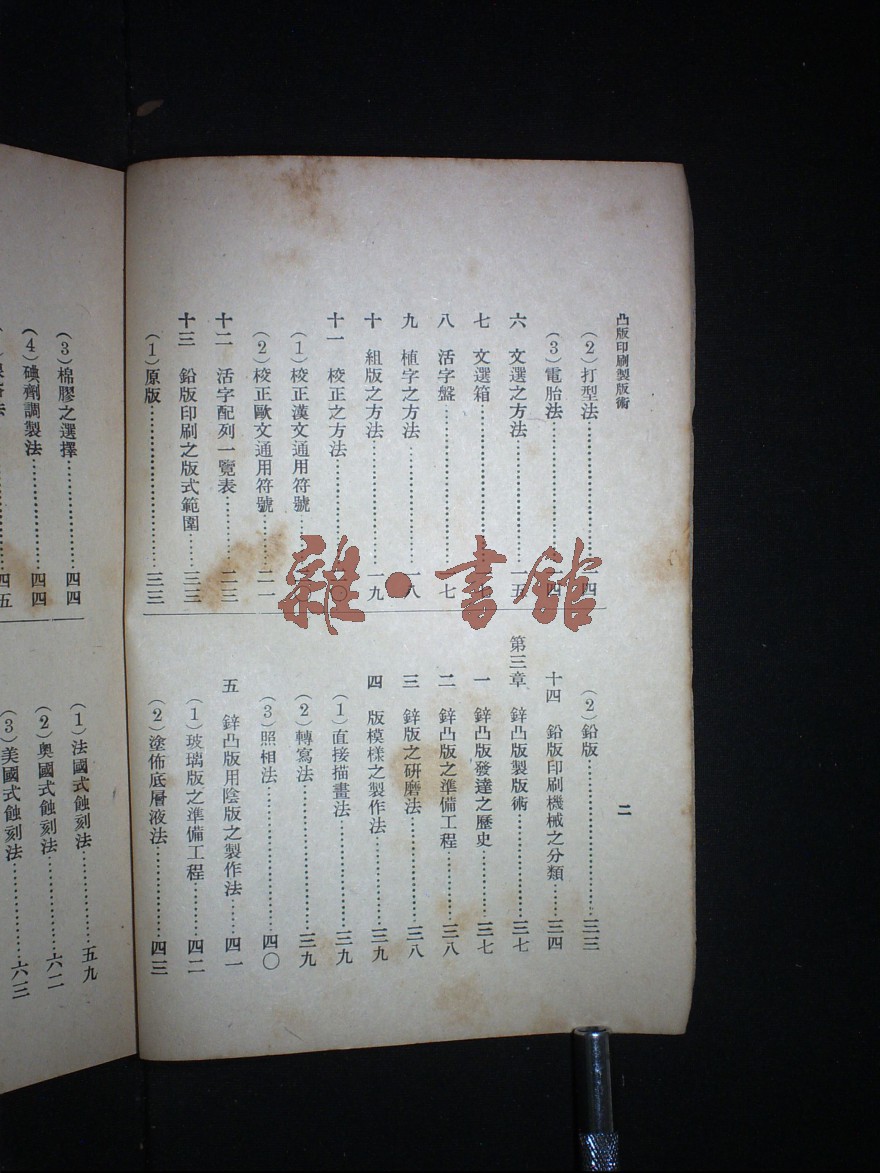 凸版印刷製版術
二
(2)打型法……一四
(3)電胎法……一四
六 文選之方法……一五
七 文選箱……
八 活字盤……一七
九 植字之方法……一八
十 組版之方法……一九
十一 校正之方法……
(1)校正漢文通用符號……
(2)校正歐文通用符號……二一
十二 活字配列一覽表……二三
十三 鉛版印刷之版式範圍……三三
(1)原版……三三
(2)鉛版……三三
十四 鉛版印刷機械之分類……三四
第三章 鋅凸版製版術……三七
一 鋅凸版發達之歷史……三七
二 鋅凸版之準備工程……三八
三 鋅版之研磨法……三八
四 版模樣之製作法……三九
(1)直接描畫法……三九
(2)轉寫法……三九
(3)照相法……四〇
五 鋅凸版用陰版之製作法……四一
(1)玻璃版之準備工程……四二
(2)塗佈底層液法……四三
(3)棉膠之選擇……四四
(4)碘劑調製法……四四
四五
(1)法國式蝕刻法……五九
(2)奧國式蝕刻法……六二
(3)美國式蝕刻法……六三
雜·書館